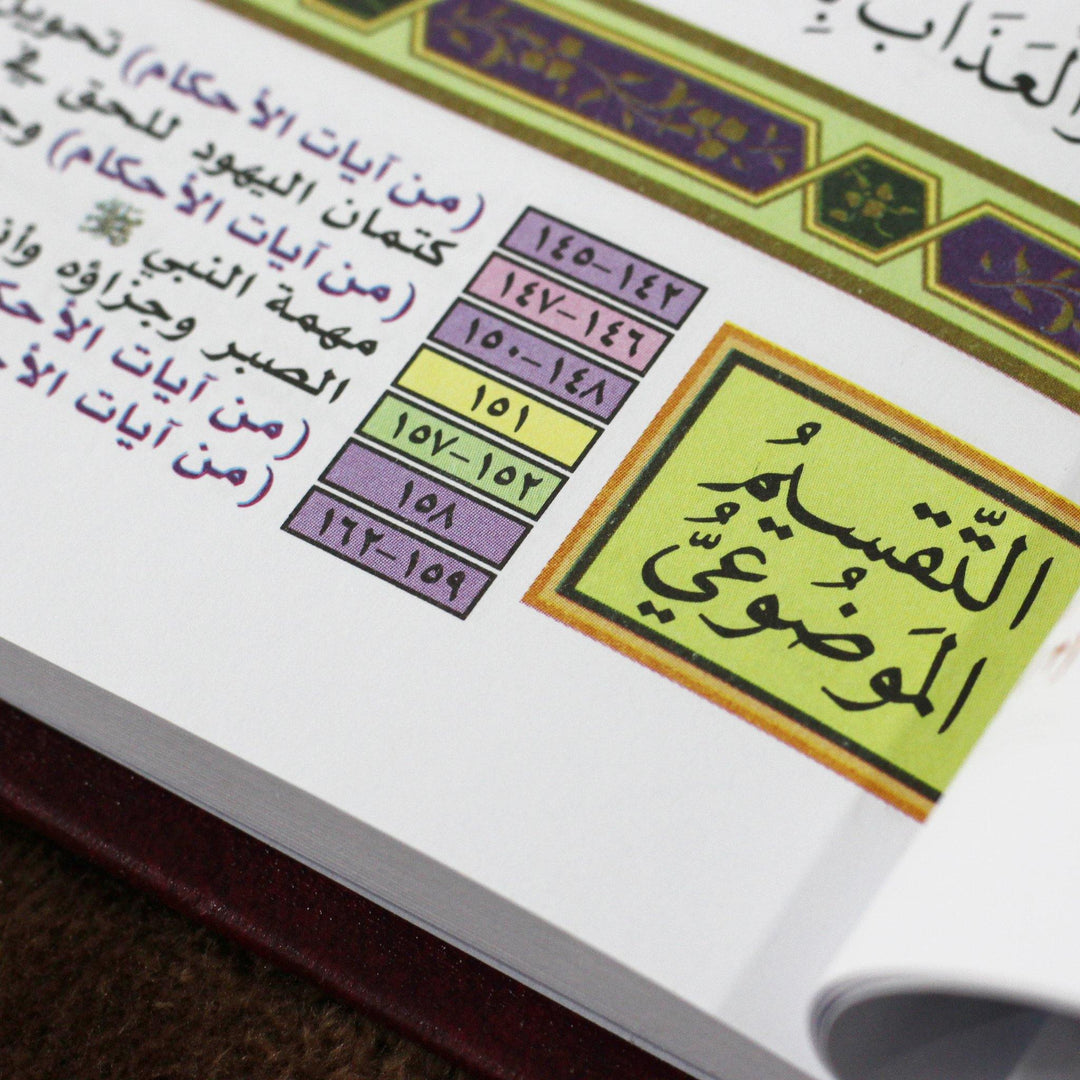 وَٱلْعَذَابَ
التَّقسيمُ
المَوضُوعيُّ
١٤٢-١٤٥ (من آيات الأحكام) تحويل
١٤٦-١٤٧ كتمان اليهود للحق في
١٤٨-١٥٠ (من آيات الأحكام)
١٥١ مهمة النبي ﷺ
١٥٢-١٥٧ الصبر وجزاؤه
١٥٨ (من آيات
١٥٩-١٦٢ (من آيات